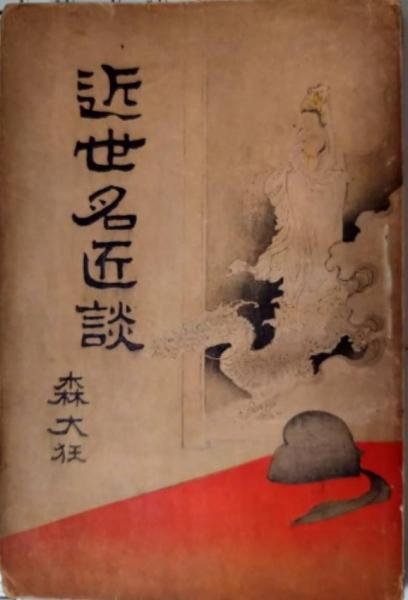 近世名匠談
森大狂